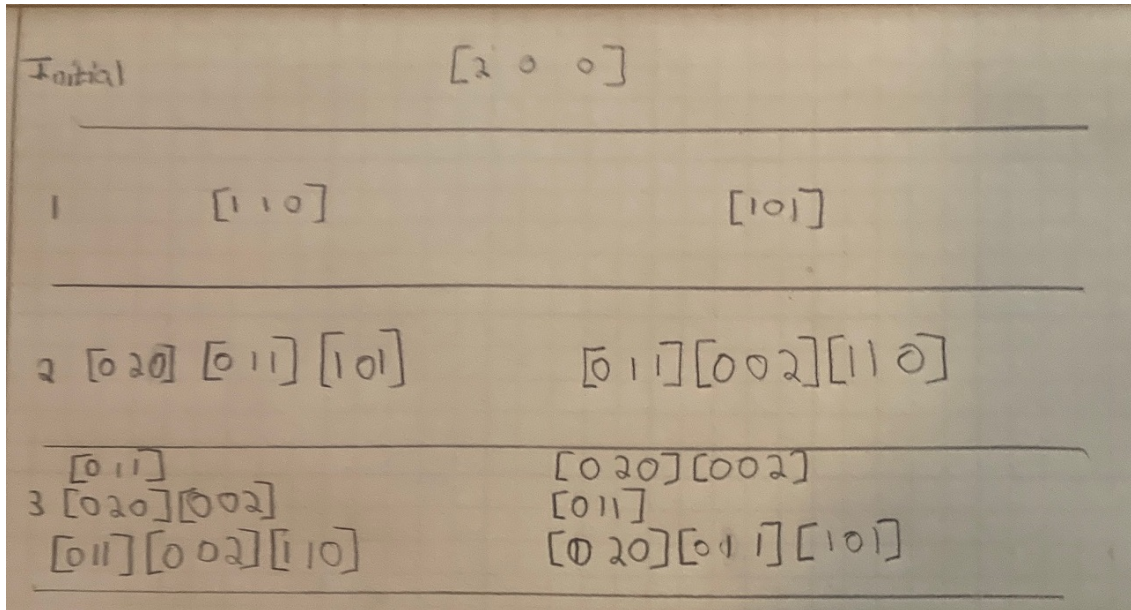 Initial [2 0 0]
1 [1 1 0] [1 0 1]
2 [0 2 0] [0 1 1] [1 0 1] [0 1 1] [0 0 2] [1 1 0]
[0 1 1] [0 2 0] [0 0 2]
3 [0 2 0] [0 0 2] [0 1 1]
[0 1 1] [0 0 2] [1 1 0] [0 2 0] [0 1 1] [1 0 1]